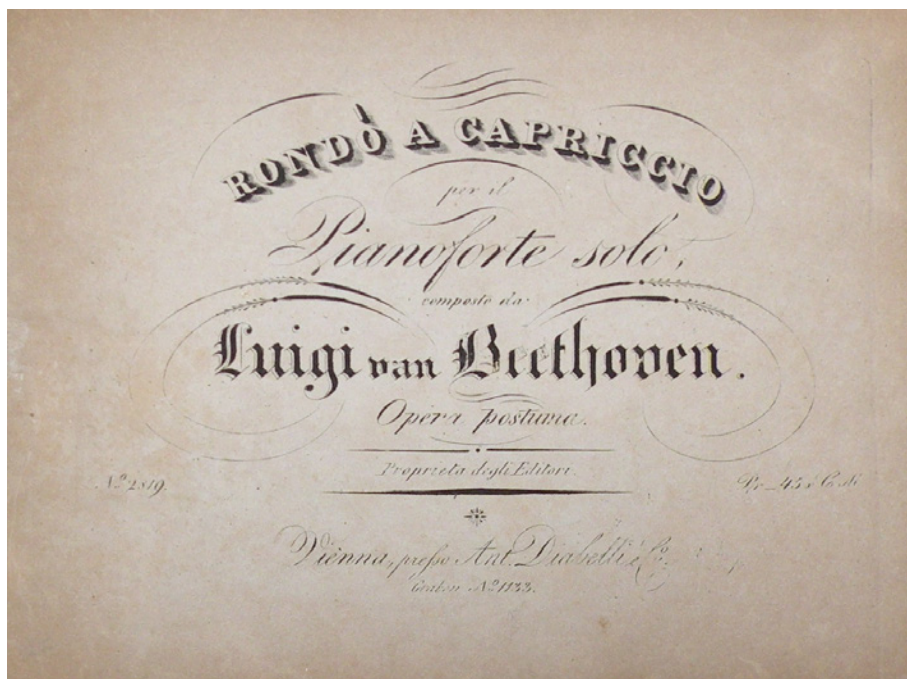 RONDÒ A CAPRICCIO
per il
Pianoforte solo,
composto da
Luigi van Beethoven.
Opera postuma.
Proprietà degli Editori.
Nº 2819.
Pr. 45 x C. M.
Vienna, presso Ant. Diabelli e Co.
Graben Nº 1133.